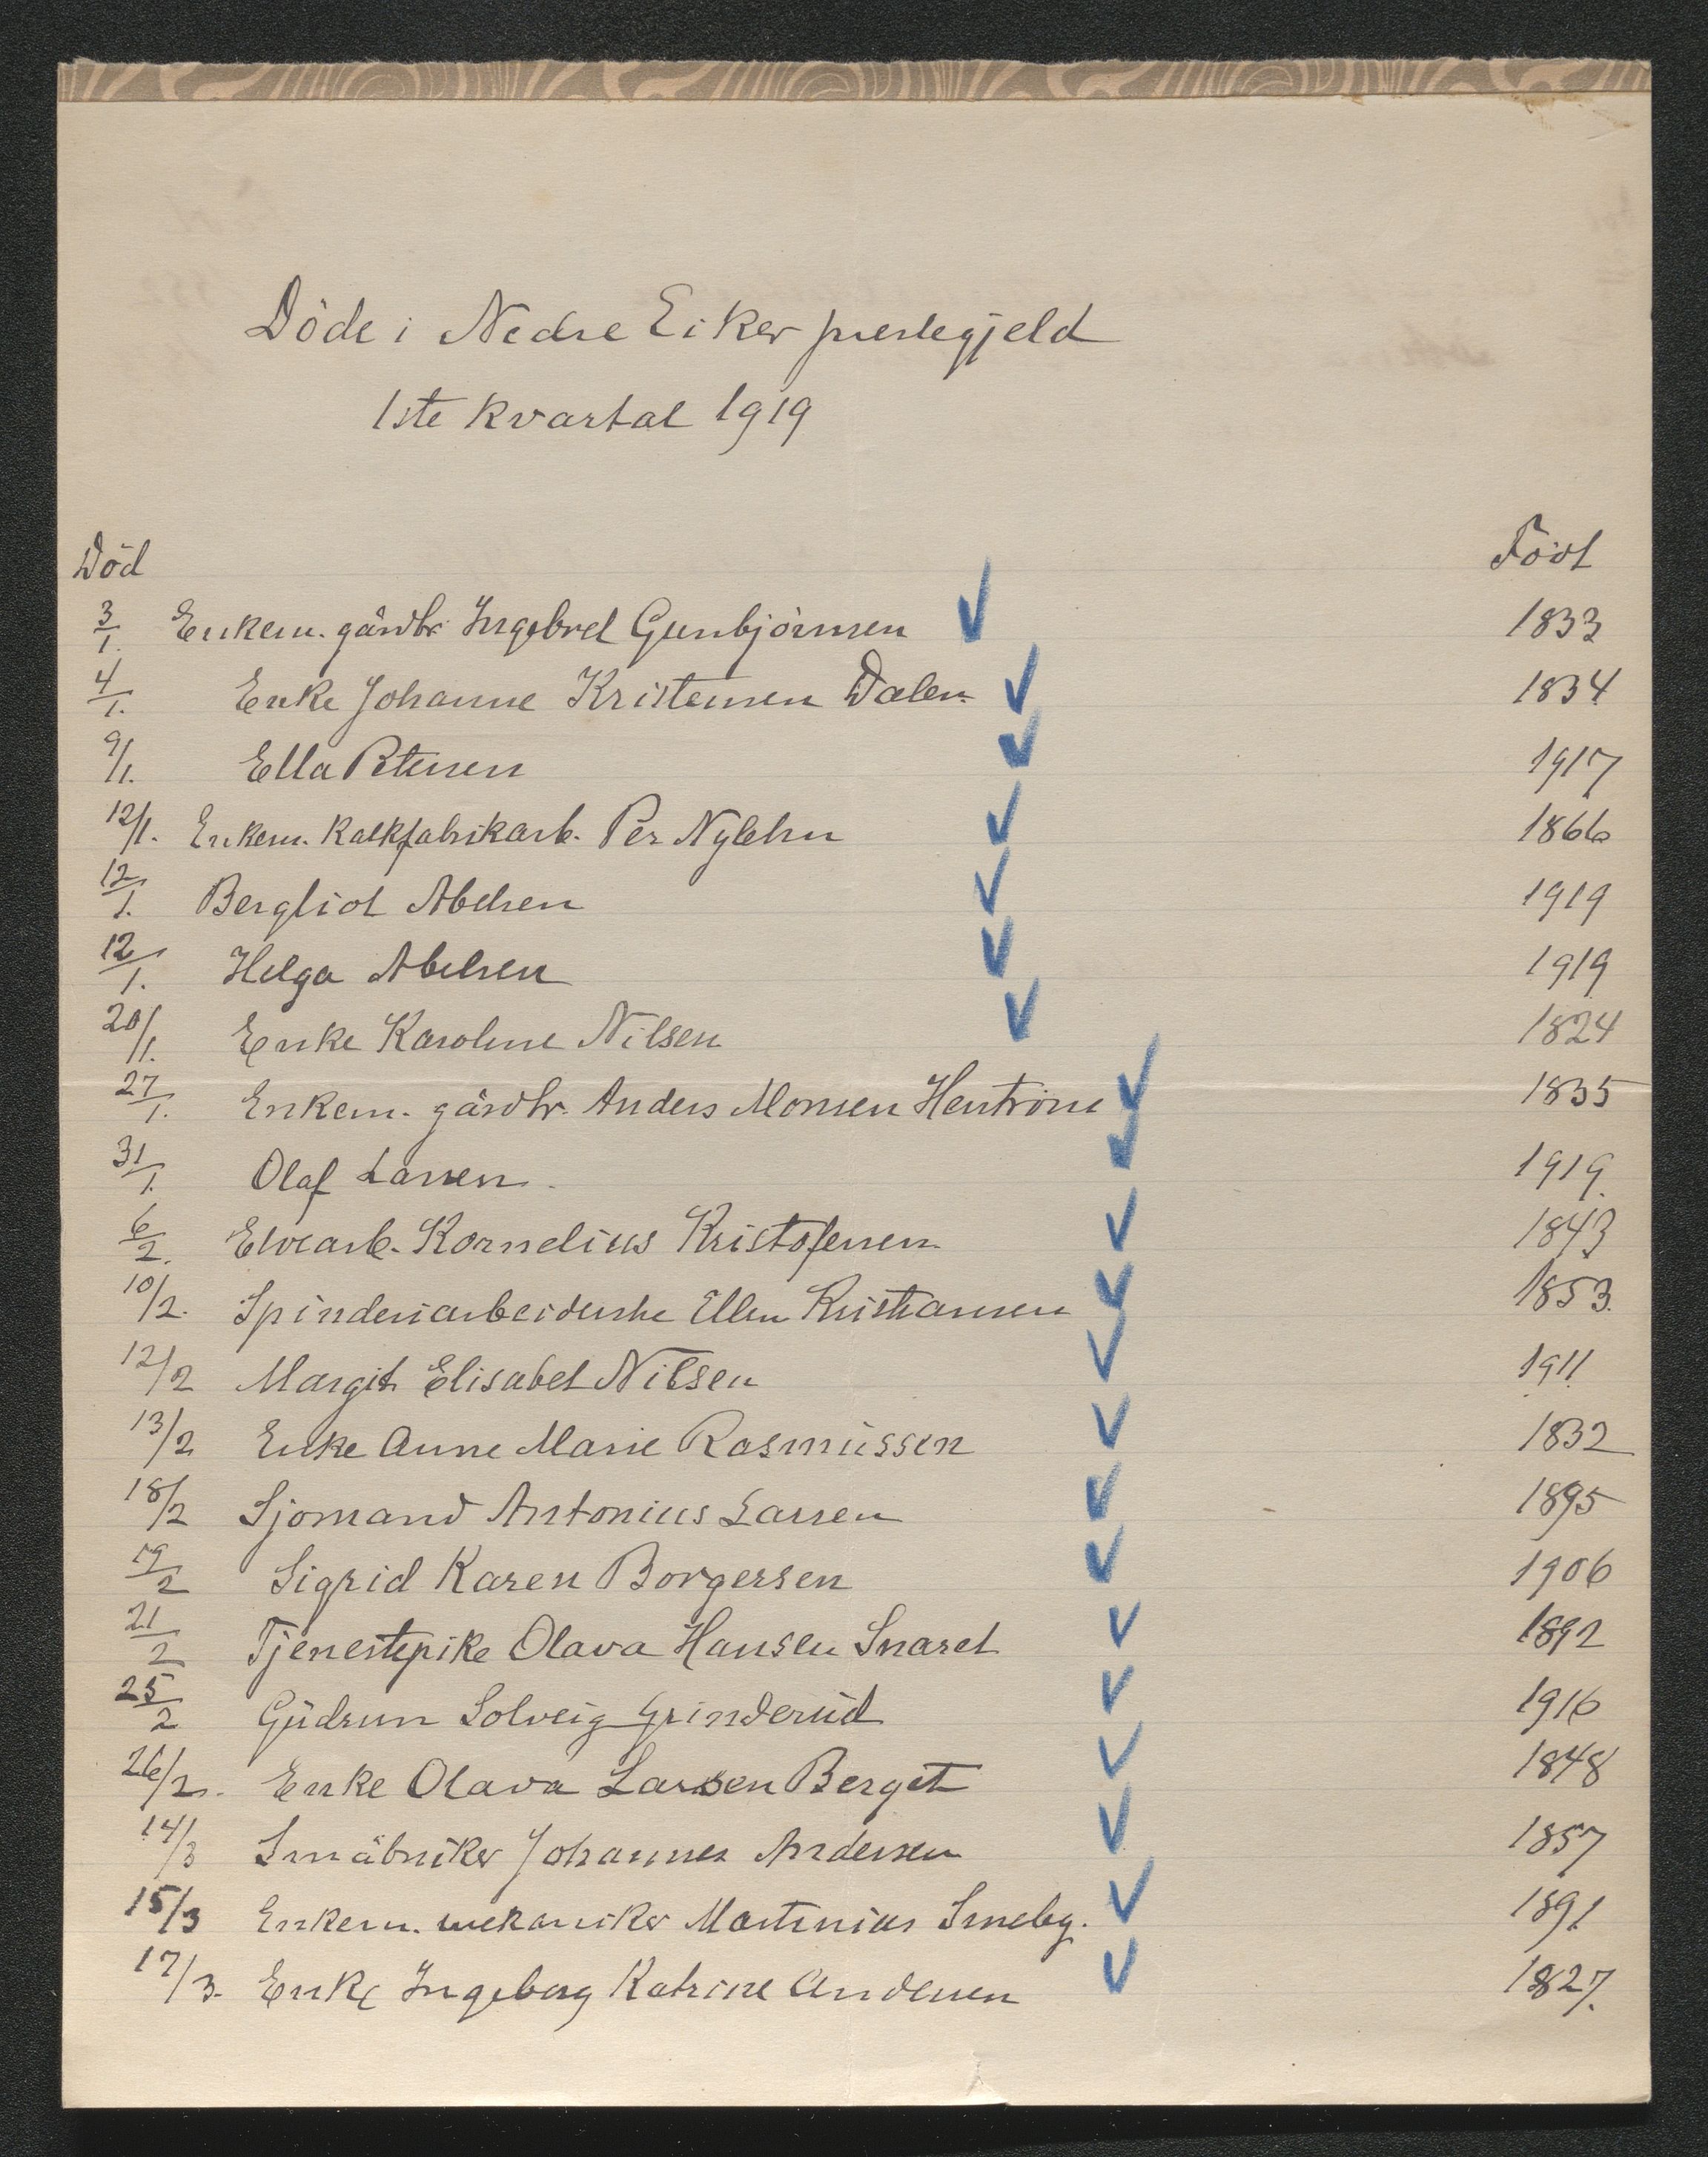 Döde i Nedre Eiker prestegjeld
1ste kvartal 1919
Död Födt
3/1. Enkem. gårdbr. Ingebret Gunbjörnsen 1833
4/1. Enke Johanne Kristensen Dalen 1834
9/1. Ella Petersen 1917
12/1. Enkem. Kalkfabrikarb. Per Nylehn 1866
12/1. Bergliot Abelsen 1919
12/1. Helga Abelsen 1919
20/1. Enke Karoline Nilsen 1824
27/1. Enkem. gårdbr. Anders Monsen 1835
31/1. Olaf Larsen. 1919.
6/2. Elvearb. Kornelius Kristofersen 1843
10/2. Spinderiarbeiderske Ellen Kristiansen 1853.
12/2 Margit Elisabet Nilsen 1911
13/2 Enke Anne Marie Rasmussen 1832
18/2 Sjomand Antonius Larsen 1895
19/2 Sigrid Karen Borgersen 1906
21/2 Tjenestepike Olava Hansen Snaret 1892
25/2 Gudrun Solveig Grinderud 1916
26/2. Enke Olava Larsen Berget 1848
14/3 Småbruker Johannes Andersen 1857
15/3 Enkem. mekaniker Martinius Smeby. 1891
17/3. Enke Ingeborg Katrine Andersen 1827.